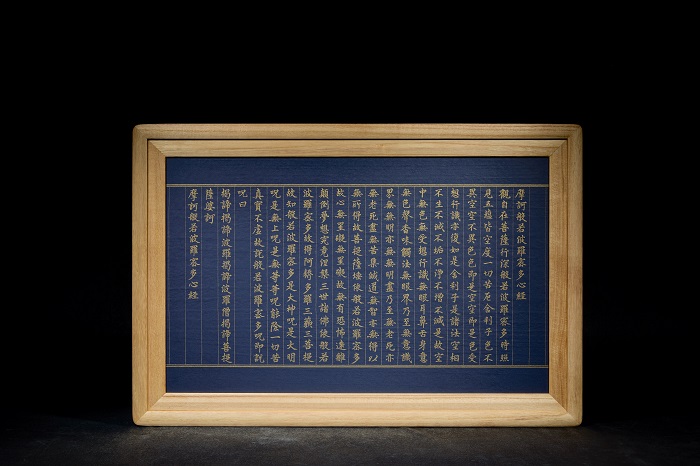 摩訶般若波羅蜜多心経
觀自在菩薩行深般若波羅蜜多時照
見五蘊皆空度一切苦厄舍利子色不
異空空不異色色即是空空即是色受
想行識亦復如是舍利子是諸法空相
不生不滅不垢不淨不增不減是故空
中無色無受想行識無眼耳鼻舌身意
無色聲香味觸法無眼界乃至無意識
界無無明亦無無明盡乃至無老死亦
無老死盡無苦集滅道無智亦無得以
無所得故菩提薩埵依般若波羅蜜多
故心無罣礙無罣礙故無有恐怖遠離
顛倒夢想究竟涅槃三世諸佛依般若
波羅蜜多故得阿耨多羅三藐三菩提
故知般若波羅蜜多是大神呪是大明
呪是無上呪是無等等呪能除一切苦
真實不虛故說般若波羅蜜多呪即說
呪曰
揭諦揭諦波羅揭諦波羅僧揭諦菩提
薩婆訶
摩訶般若波羅蜜多心経